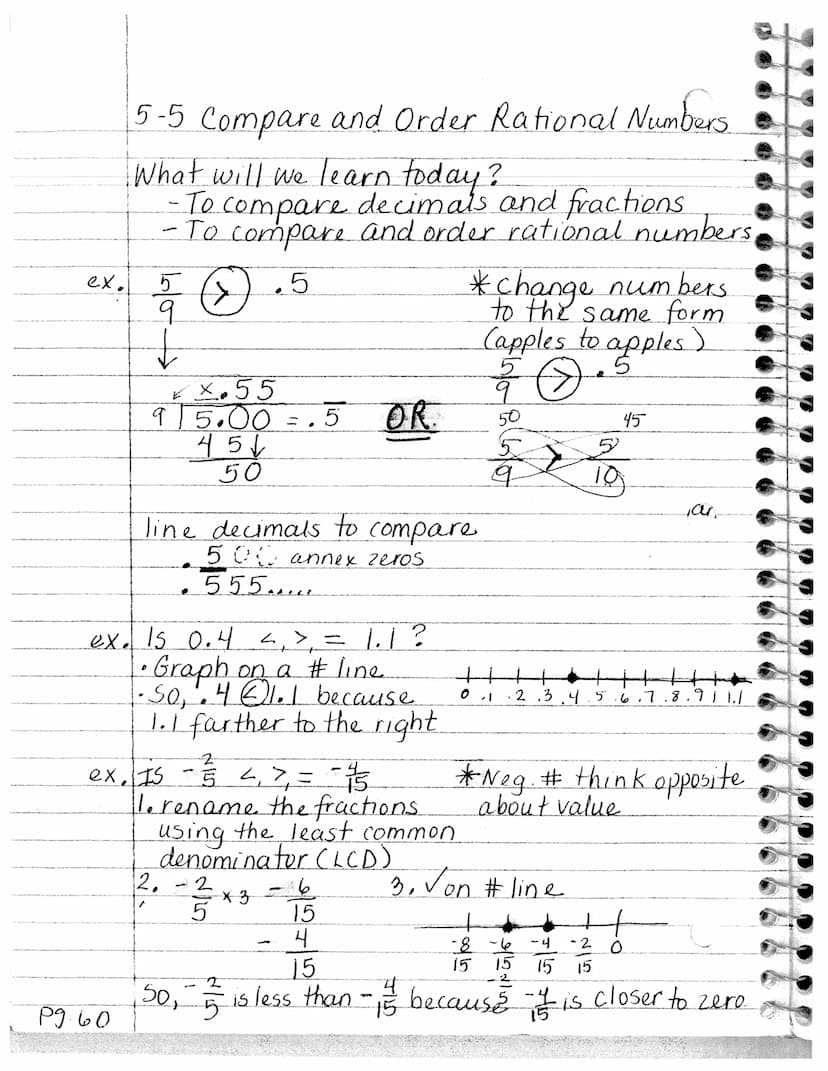 5-5 Compare and Order Rational Numbers
What will we learn today?
- To compare decimals and fractions
- To compare and order rational numbers
ex. 5/9 > .5
* Change numbers
to the same form
(apples to apples)
5/9 > .5
x.55
9 5.00 = .5̅
4 5↓
50
OR.
50 45
5/9 > 5/10
line decimals to compare
.500 annex zeros
.555.....
ex. Is 0.4 <, >, = 1.1 ?
• Graph on a # line
• So, .4 < 1.1 because
1.1 farther to the right
0 .1 .2 .3 .4 .5 .6 .7 .8 .9 1 1.1
ex. Is -2/5 <, >, = -4/15
* Neg. # think opposite
about value
1. rename the fractions
using the least common
denominator (LCD)
2. -2/5 x 3 -6/15
-4/15
3. ✓ on # line
-8/15 -6/15 -4/15 -2/15 0
-2/5
So, -2/5 is less than -4/15 because -4/15 is closer to zero
Pg 60